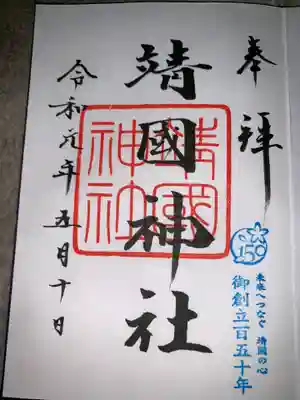 奉拝
靖國神社
靖國神社
令和元年五月十日
150
未来へつなぐ 靖国の心
御創立百五十年